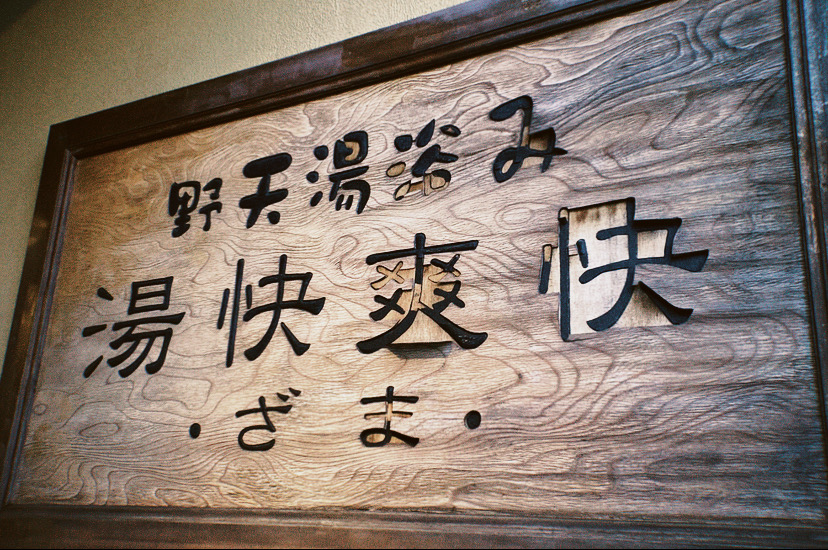 野天湯浴み
湯快爽快
・ざま・